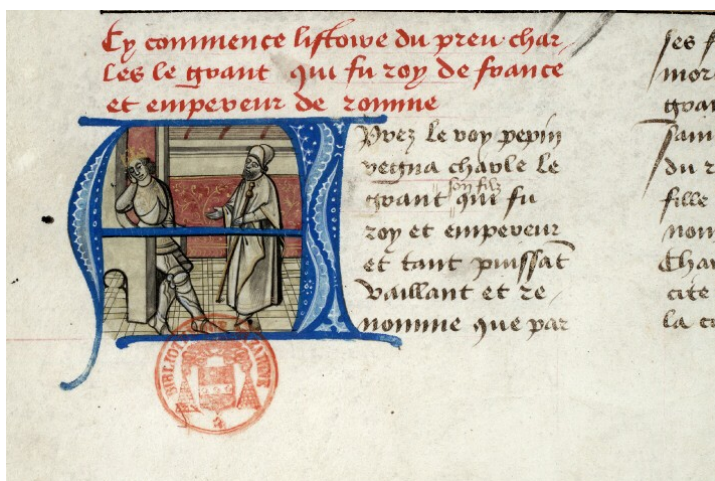 Cy commence listoire du preu char
les le grant qui fu roy de france
et empereur de romme
Apres le roy pepin
regna charle le
son filz
grant qui fu
roy et empereur
et tant puissāt
vaillant et re
nomme que par
ses
mor
gran
du r
fille
nom
Char
cite
la